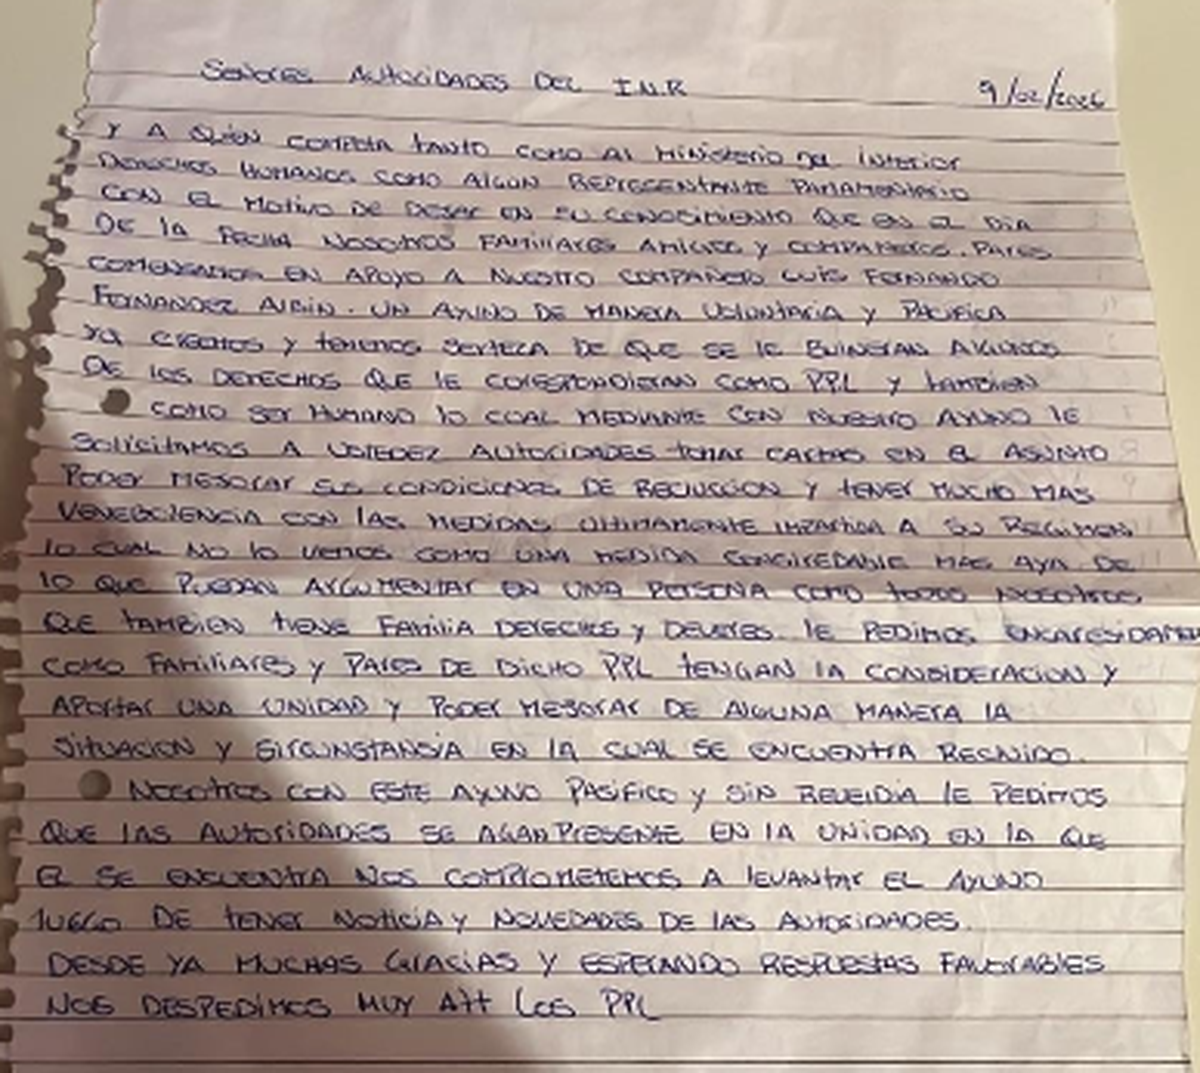 SEÑORES AUTORIDADES DEL I.N.R 9/02/2026
Y A QUIÉN COMPETA TANTO COMO AL MINISTERIO DEL INTERIOR
DERECHOS HUMANOS COMO ALGUN REPRESENTANTE PARLAMENTARIO
CON EL MOTIVO DE DEJAR EN SU CONOCIMIENTO QUE EN EL DIA
DE LA FECHA NOSOTROS FAMILIARES AMIGOS Y COMPAÑEROS. PARES
COMENSAMOS EN APOYO A NUESTRO COMPAÑERO LUIS FERNANDO
FERNANDEZ ALBIN. UN AYUNO DE MANERA VOLUNTARIA Y PACIFICA
YA CREEMOS Y TENEMOS SERTEZA DE QUE SE LE BUINERAN ALGUNOS
DE LOS DERECHOS QUE LE CORESPONDIERAN COMO PPL Y TAMBIEN
COMO SER HUMANO LO CUAL MEDIANTE CON NUESTRO AYUNO LE
SOLICITAMOS A USTEDEZ AUTORIDADES TOMAR CARTAS EN EL ASUNTO
PODER MEJORAR SUS CONDICIONES DE RECLUCCION Y TENER MUCHO MAS
VENEBOLENCIA CON LAS MEDIDAS ULTIMAMENTE IMPARTIDA A SU REGIMEN
LO CUAL NO LO VEMOS COMO UNA MEDIDA CONCIREDABLE MAS AYA DE
LO QUE PUEDAN ARGUMENTAR EN UNA PERSONA COMO TODOS NOSOTROS
QUE TAMBIEN TIENE FAMILIA DERECHOS Y DEVERES. LE PEDIMOS ENCARESIDAMENTE
COMO FAMILIARES Y PARES DE DICHO PPL TENGAN LA CONSIDERACION Y
APORTAR UNA UNIDAD Y PODER MEJORAR DE ALGUNA MANERA LA
SITUACION Y SIRCUNSTANSIA EN LA CUAL SE ENCUENTRA RECUIDO.
NOSOTROS CON ESTE AYUNO PASIFICO Y SIN REVELDIA LE PEDIMOS
QUE LAS AUTORIDADES SE AGAN PRESENTE EN LA UNIDAD EN LA QUE
EL SE ENCUENTRA NOS COMPROMETEMOS A LEVANTAR EL AYUNO
LUEGO DE TENER NOTICIA Y NOVEDADES DE LAS AUTORIDADES.
DESDE YA MUCHAS GRACIAS Y ESPERANDO RESPUESTAS FAVORABLES
NOS DESPEDIMOS MUY ATT LOS PPL